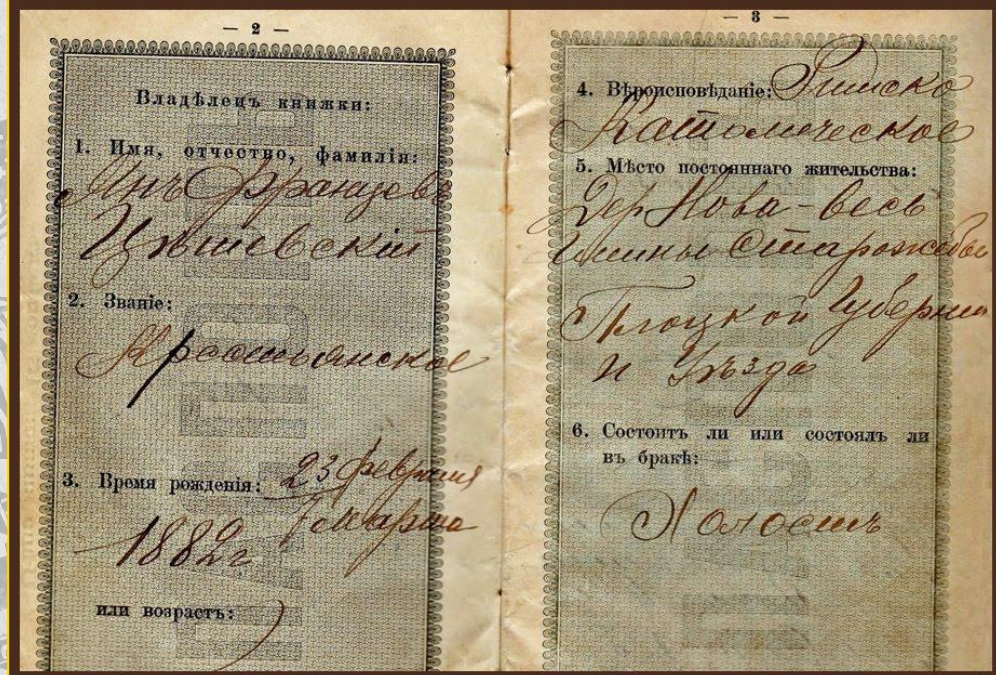 — 2 —
Владѣлецъ книжки:
1. Имя, отчество, фамилія:
Янъ Францевъ
Цѣшевскій
2. Званіе:
Крестьянское
3. Время рожденія: 23 февраля
7 марта
1882г
или возрастъ:
— 3 —
4. Вѣроисповѣданіе: Римско
Католическое
5. Мѣсто постояннаго жительства:
Дер Нова-весь
Гмины Старожебы
Плоцкой Губерніи
и Уѣзда
6. Состоитъ ли или состоялъ ли
въ бракѣ:
Холостъ